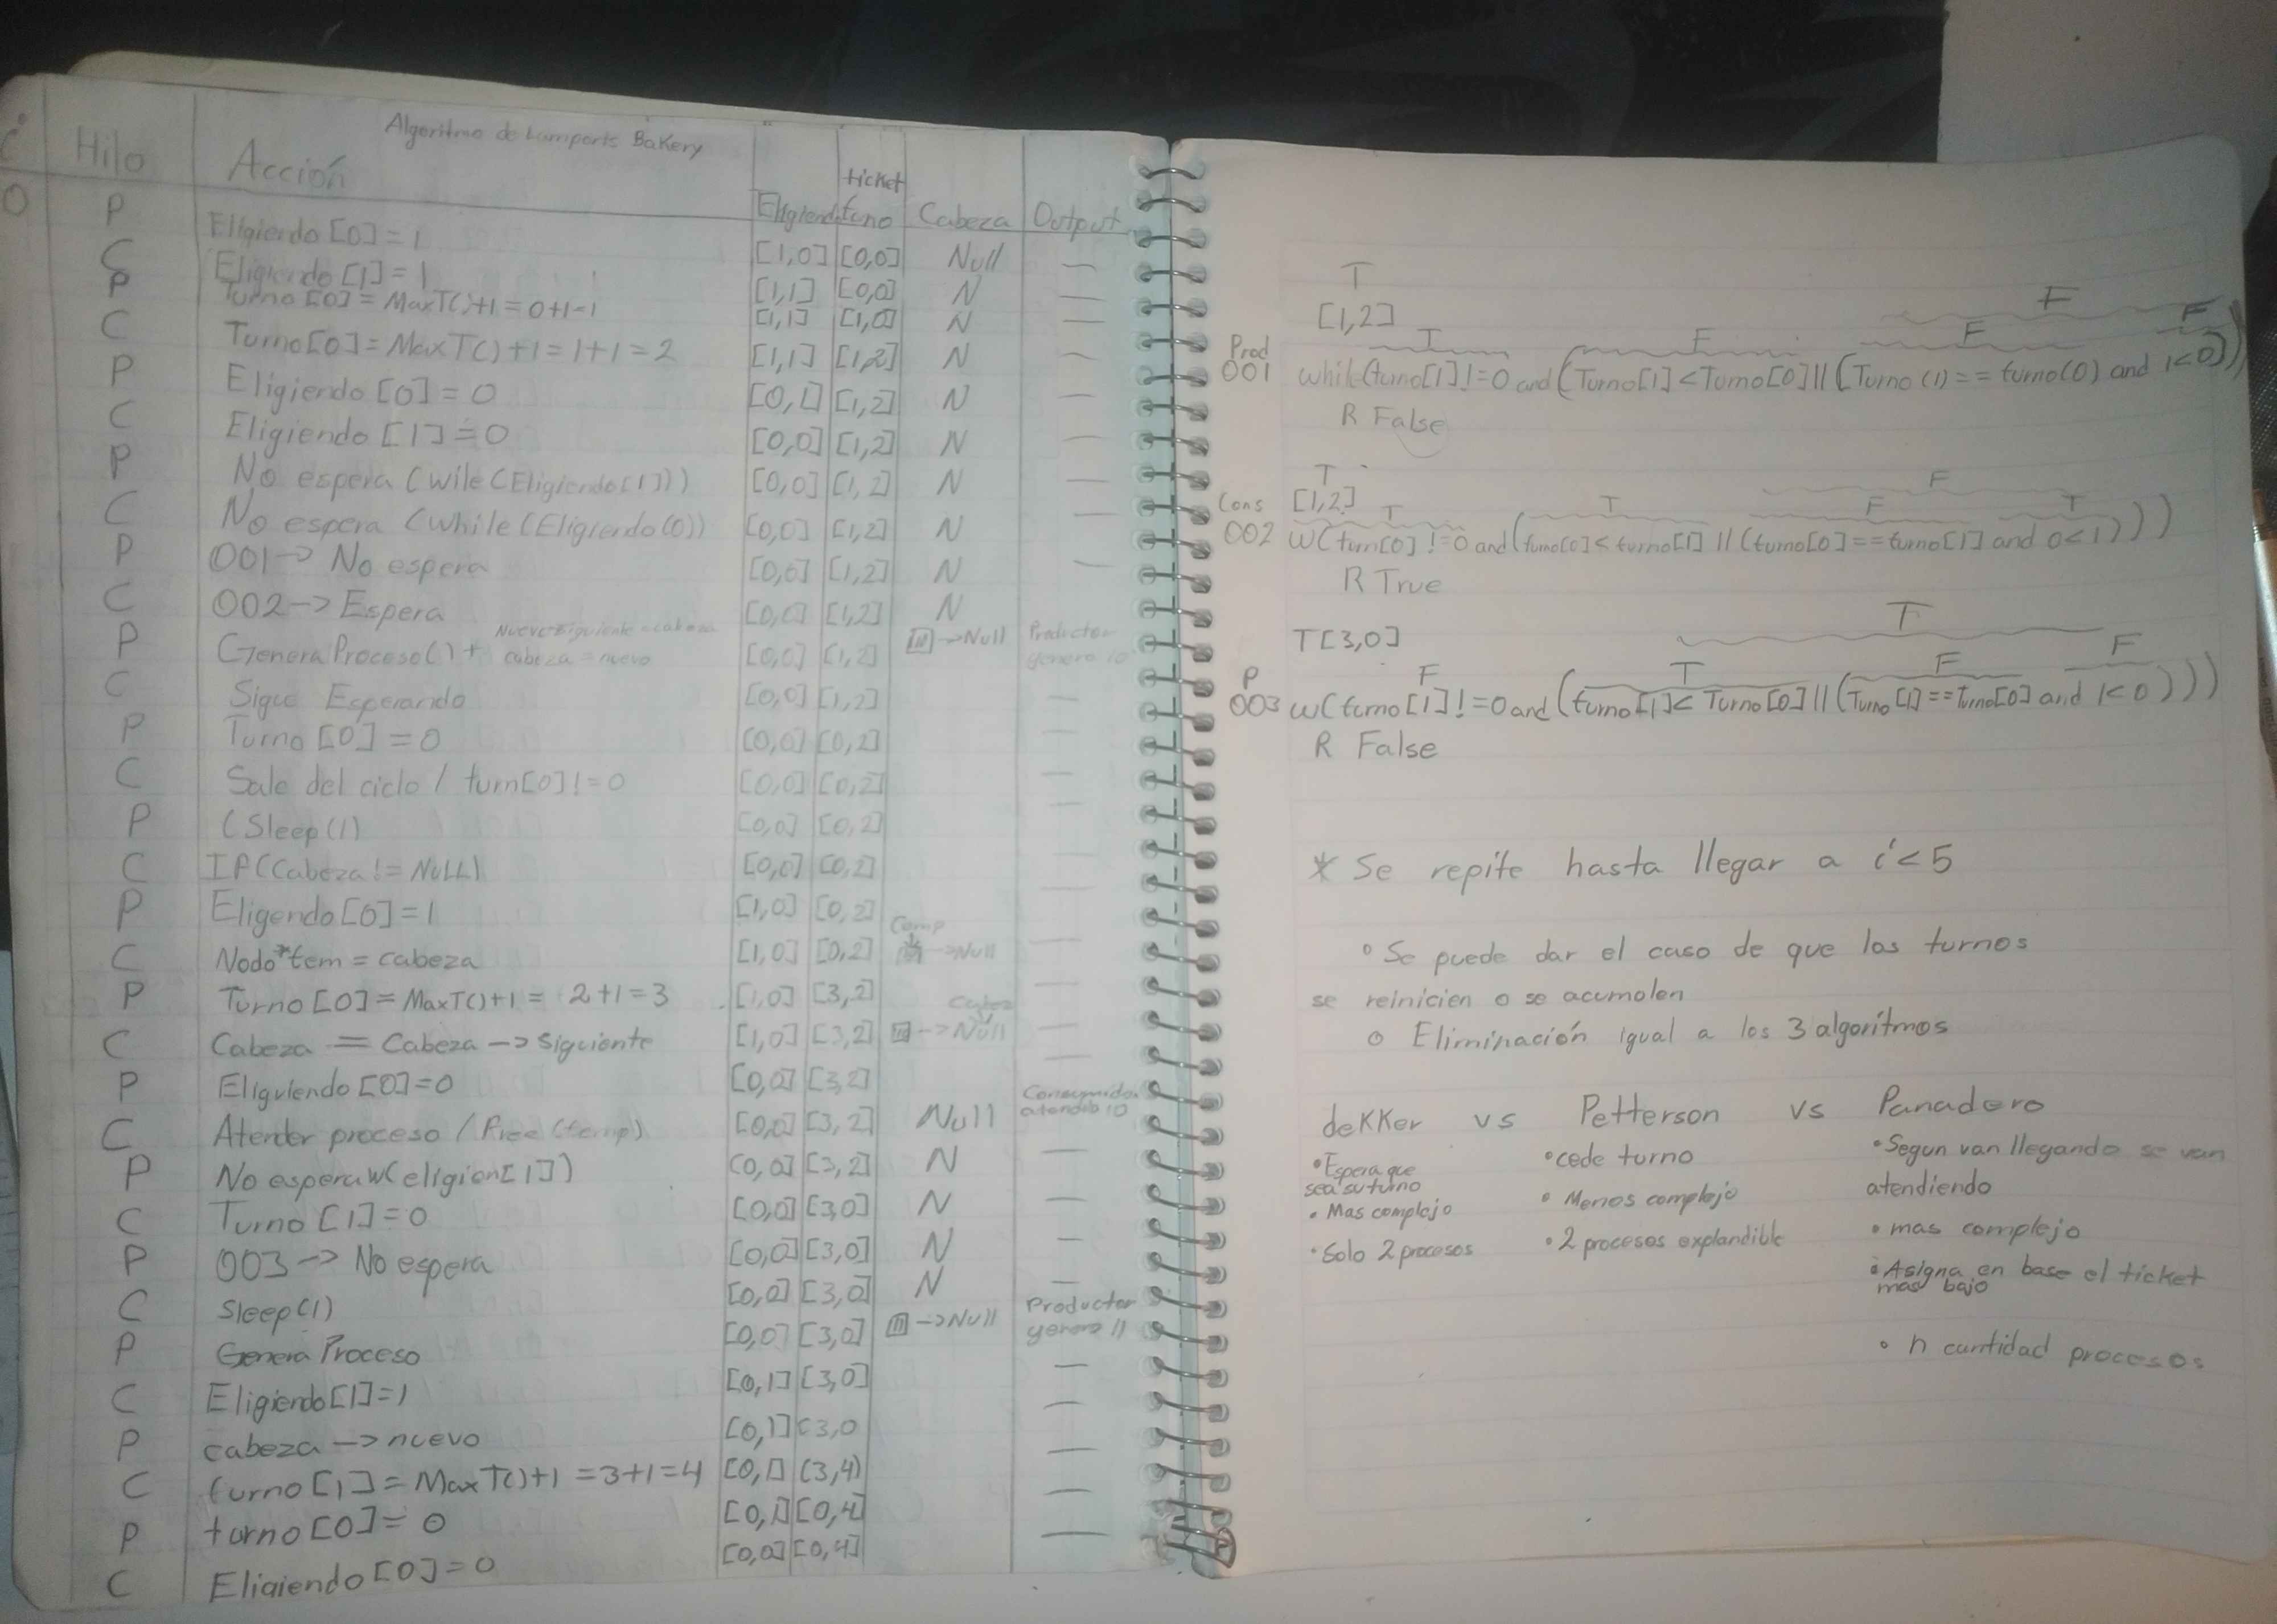 Algoritmo de Lamports Bakery
i Hilo Acción Eligiend ticket turno Cabeza Output
0 P Eligiendo [0] = 1 [1,0] [0,0] Null —
C Eligiendo [1] = 1 [1,1] [0,0] N —
P Turno [0] = MaxT()+1 = 0+1=1 [1,1] [1,0] N —
C Turno[0] = MaxT()+1 = 1+1 = 2 [1,1] [1,2] N —
P Eligiendo [0] = 0 [0,1] [1,2] N —
C Eligiendo [1] = 0 [0,0] [1,2] N —
P No espera (wile (Eligiendo[1])) [0,0] [1,2] N —
C No espera (while (Eligiendo(0)) [0,0] [1,2] N —
P 001 -> No espera [0,0] [1,2] N —
C 002 -> Espera [0,0] [1,2] N
P Genera Proceso() + Nuevo siguiente = cabeza cabeza = nuevo [0,0] [1,2] -> Null Productor genero 10
C Sigue Esperando [0,0] [1,2] —
P Turno [0] = 0 [0,0] [0,2] —
C Sale del ciclo / turn[0]!=0 [0,0] [0,2] —
P (Sleep(1) [0,0] [0,2] —
C IF(Cabeza != NULL) [0,0] [0,2] —
P Eligendo[0] = 1 [1,0] [0,2] —
C Nodo*tem = cabeza [1,0] [0,2] -> Null —
P Turno [0] = MaxT()+1 = 2+1 = 3 [1,0] [3,2] —
C Cabeza = Cabeza -> Siguiente [1,0] [3,2] -> Null —
P Eliguiendo [0]=0 [0,0] [3,2] —
C Atender proceso / Free (temp) [0,0] [3,2] Null Consumidor atendio 10
P No espera w(eligien[1]) [0,0] [3,2] N —
C Turno [1] = 0 [0,0] [3,0] N —
P 003 -> No espera [0,0] [3,0] N —
C Sleep(1) [0,0] [3,0] N —
P Genera Proceso [0,0] [3,0] -> Null Productor genero 11
C Eligiendo [1]=1 [0,1] [3,0] —
P cabeza -> nuevo [0,1] [3,0 —
C turno [1] = Max T()+1 = 3+1 = 4 [0,1] (3,4) —
P turno [0] = 0 [0,1] [0,4] —
C Eligiendo [0] = 0 [0,0] [0,4] —
T
[1,2]
T F F F F
Prod 001 while(turno[1]!=0 and (Turno[1] < Turno[0] || (Turno (1) == turno(0) and 1<0)))
R False
T
[1,2]
T T F F T
Cons 002 w(turn[0] != 0 and (turno[0] < turno[1] || (turno[0] == turno[1] and 0<1)))
R True
T[3,0]
F T T F F
P 003 w(turno[1]!=0 and (turno[1] < Turno[0] || (Turno[1] == Turno[0] and 1<0)))
R False
* Se repite hasta llegar a i<5
° Se puede dar el caso de que los turnos
se reinicien o se acumolen
o Eliminación igual a los 3 algoritmos
deKKer vs Petterson vs Panadero
• Espera que sea su turno
• Mas complejo
• Solo 2 procesos
• cede turno
• Menos complejo
• 2 procesos explandible
• Segun van llegando se van
atendiendo
• mas complejo
• Asigna en base el ticket
mas bajo
• n cantidad procesos